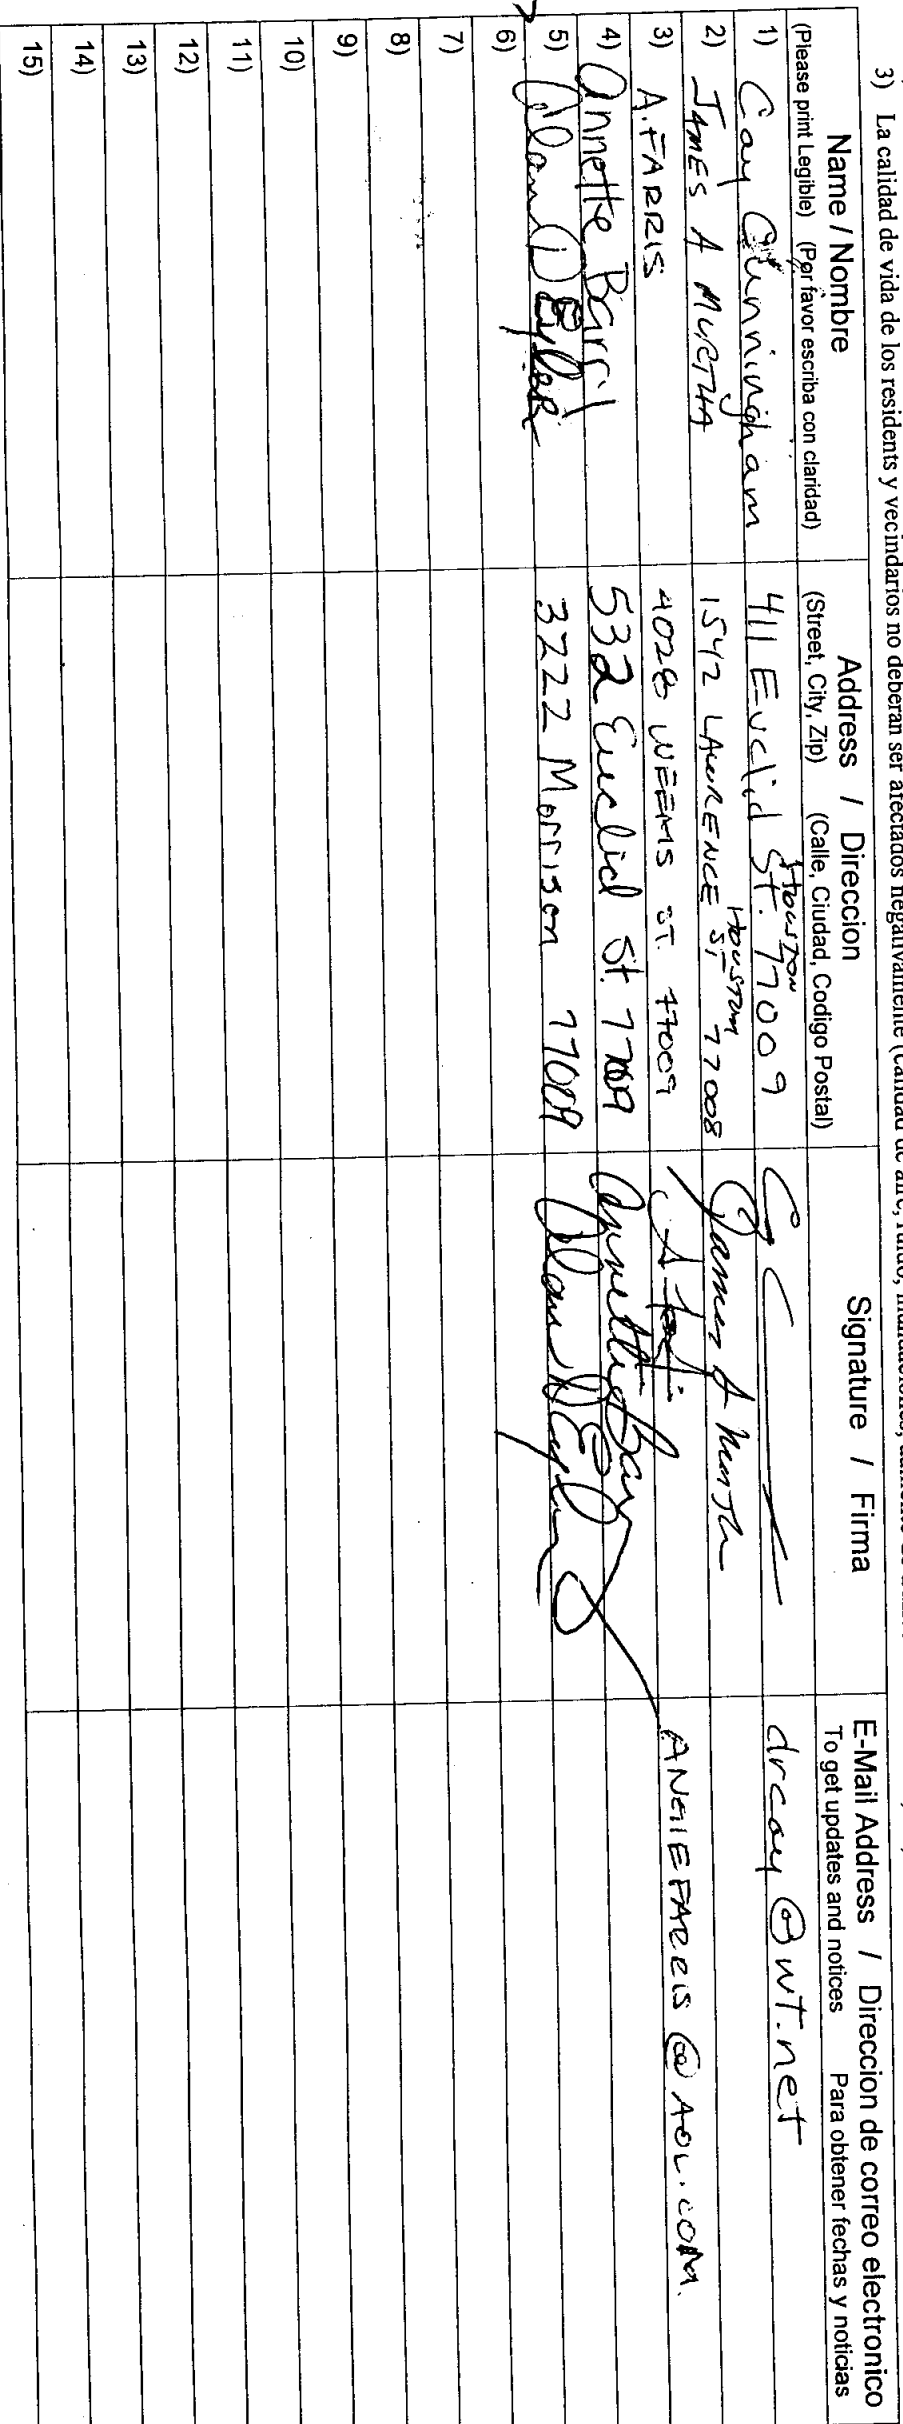 3) La calidad de vida de los residents y vecindarios no deberan ser afectados negativamente (calidad de aire, ruido, inundaciones, aumento de
Name / Nombre
(Please print Legible) (Por favor escriba con claridad)
Address / Direccion
(Street, City, Zip) (Calle, Ciudad, Codigo Postal)
Signature / Firma
E-Mail Address / Direccion de correo electronico
To get updates and notices Para obtener fechas y noticias
1) Cay Cunningham 411 Euclid St. Houston 77009 drcay@wt.net
2) JAMES A MURTHA 1542 LAWRENCE ST HOUSTON 77008 James A Murtha
3) A. FARRIS 4028 WEEMS ST. 77009 ANGIEFARRIS@AOL.COM
4) Annette Barril 532 Euclid St. 77009 Annette
5) Alan D Eyler 3722 Morrison 77009 Alan D Eyler
6)
7)
8)
9)
10)
11)
12)
13)
14)
15)